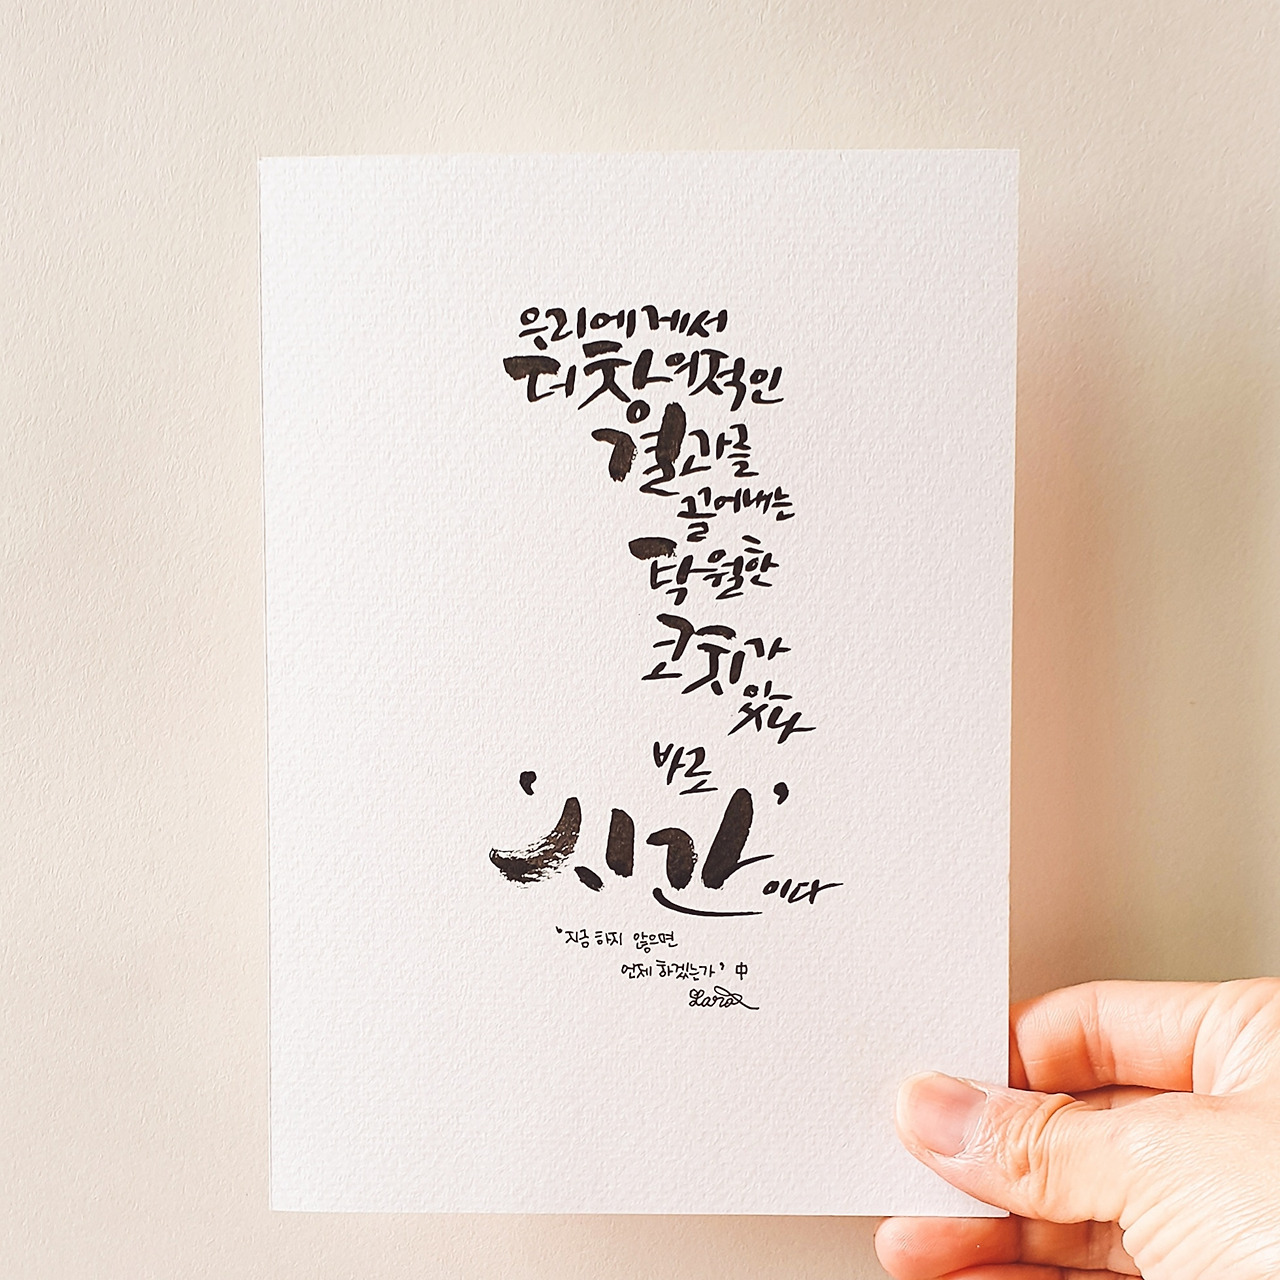 우리에게서
더 창의적인
결과를
끌어내는
탁월한
코치가
있다
바로
'시간'이다
'지금 하지 않으면
언제 하겠는가' 中
Lara